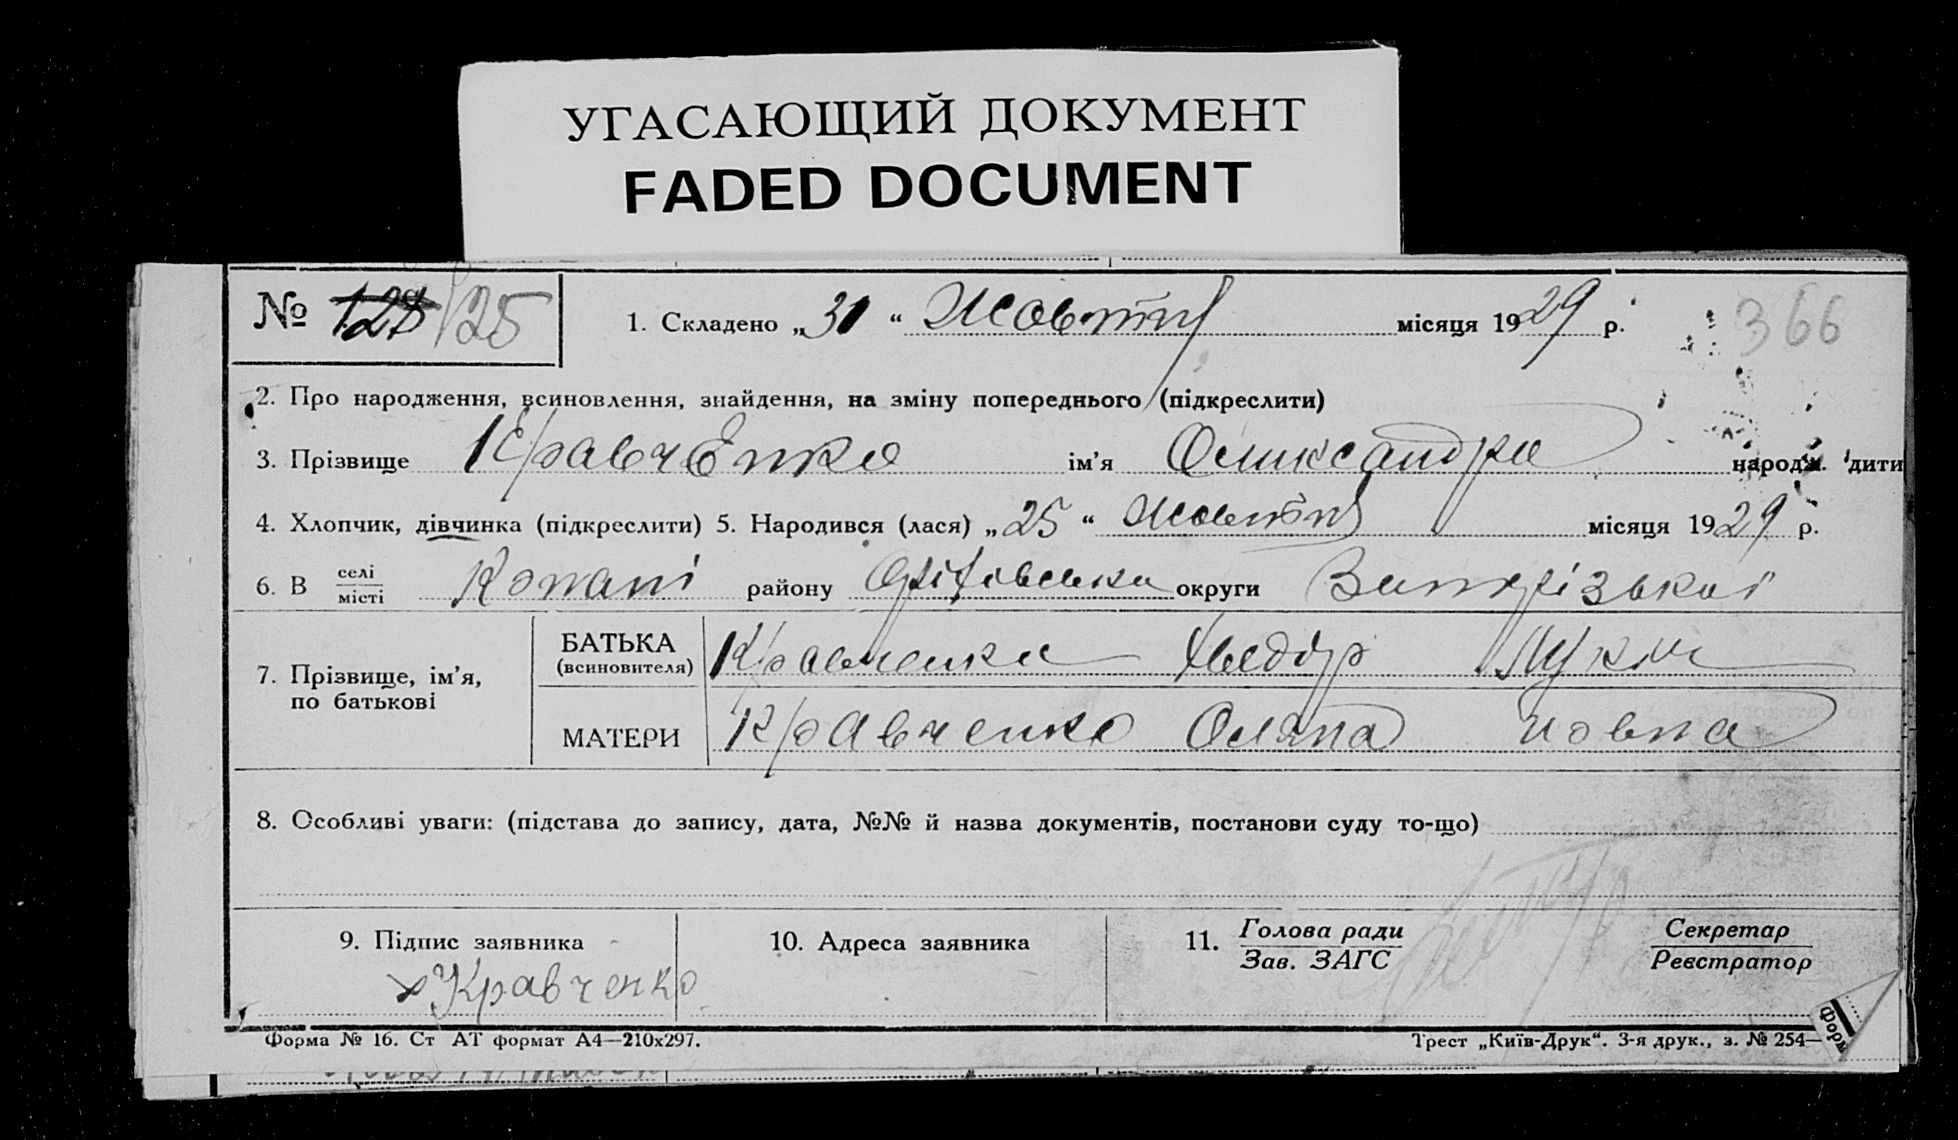 УГАСАЮЩИЙ ДОКУМЕНТ
FADED DOCUMENT
№ 128 125
1. Складено „31“ Жовтня місяця 1929 р.
366
2. Про народження, всиновлення, знайдення, на зміну попереднього (підкреслити)
3. Прізвище Кравченко ім’я Олександра народж. дити
4. Хлопчик, дівчинка (підкреслити) 5. Народився (лася) „25“ Жовтня місяця 1929 р.
6. В селі Копані району Оріхівська округи Запорізької
місті
7. Прізвище, ім’я, по батькові
БАТЬКА (всиновителя) Кравченко Хведір Лукич
МАТЕРИ Кравченко Оляна овна
8. Особливі уваги: (підстава до запису, дата, №№ й назва документів, постанови суду то-що)
9. Підпис заявника
10. Адреса заявника
11. Голова ради
Зав. ЗАГС
Секретар
Реєстратор
Кравченко
Форма № 16. Ст АТ формат А4—210х297.
Трест „Київ-Друк“. 3-я друк., з. № 254—
Форм